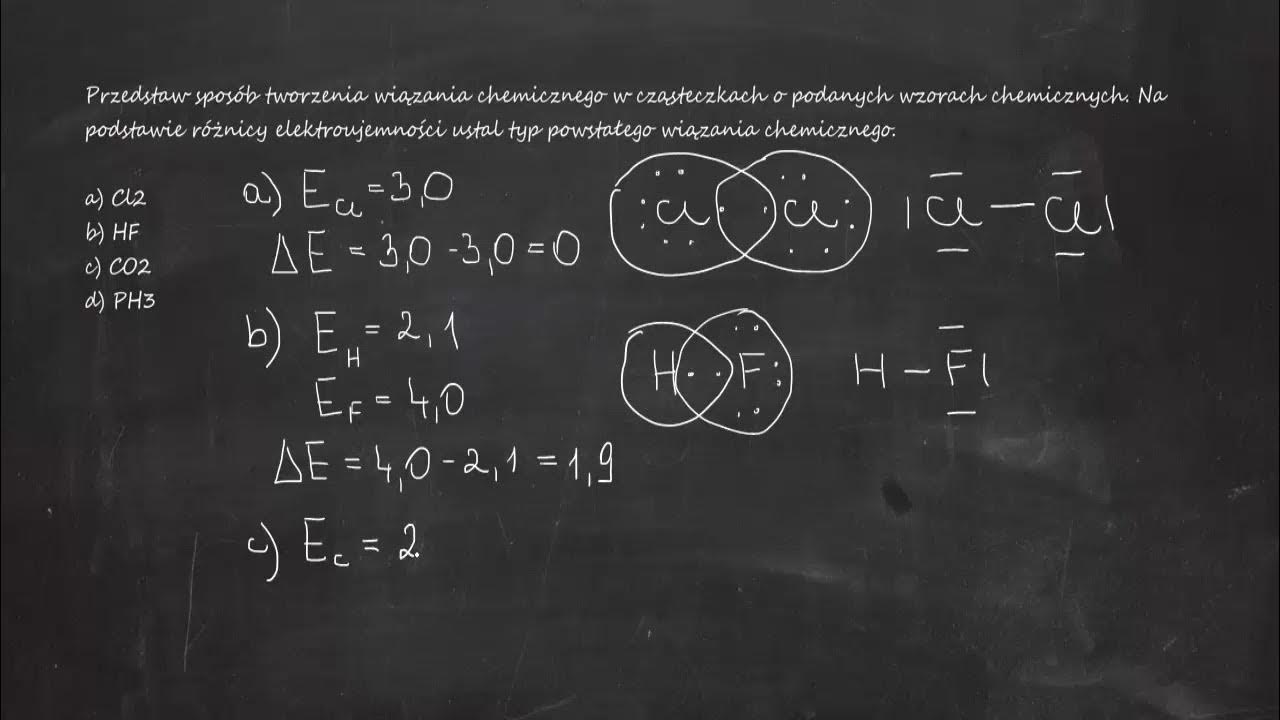 Przedstaw sposób tworzenia wiązania chemicznego w cząsteczkach o podanych wzorach chemicznych. Na
podstawie różnicy elektroujemności ustal typ powstałego wiązania chemicznego.
a) Cl2
b) HF
c) CO2
d) PH3
a) E Cl = 3,0
ΔE = 3,0 - 3,0 = 0
Cl Cl
|Cl — Cl|
b) E H = 2,1
E F = 4,0
ΔE = 4,0 - 2,1 = 1,9
H F
H — F|
c) E C = 2